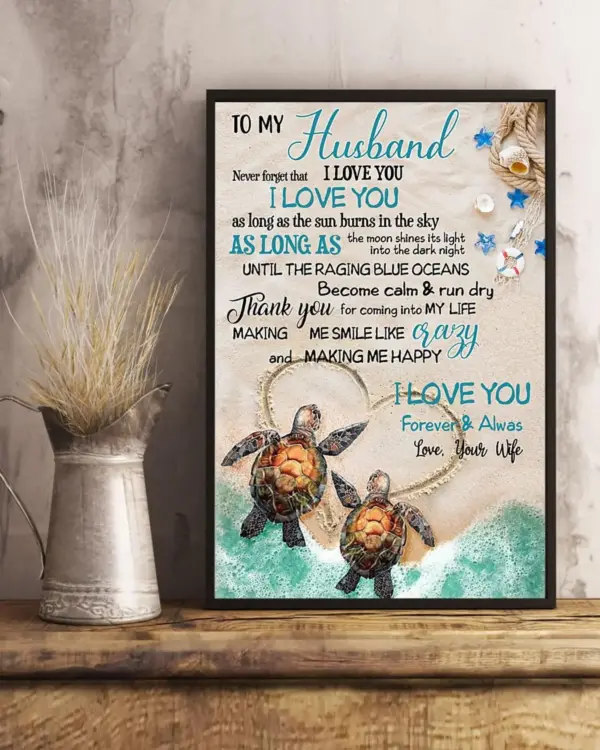 TO MY Husband
Never forget that I LOVE YOU
I LOVE YOU
as long as the sun burns in the sky
AS LONG AS the moon shines its light
into the dark night
UNTIL THE RAGING BLUE OCEANS
Become calm & run dry
Thank you for coming into MY LIFE
MAKING ME SMILE LIKE crazy
and MAKING ME HAPPY
I LOVE YOU
Forever & Alwas
Love, Your Wife